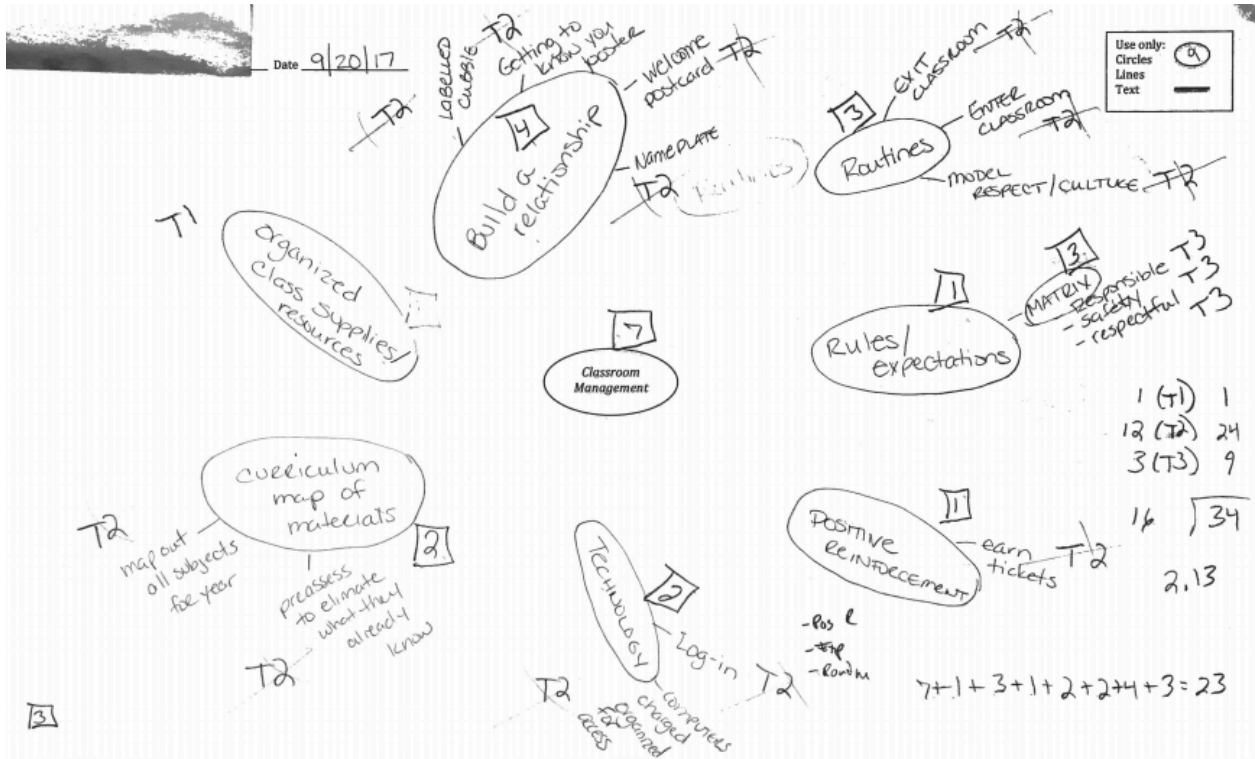 Date 9/20/17
Use only:
Circles
Lines
Text
9
T2
LABELLED
CUBBIE
T2
Getting to
know you
poster
Welcome
postcard
T2
4
Build a
relationship
NAMEPLATE
T2
Routines
3
Routines
EXIT
CLASSROOM
T2
ENTER
CLASSROOM
T2
MODEL
RESPECT/CULTURE
T2
T1
organized
class supplies/
resources
7
Classroom
Management
1
Rules/
expectations
3
MATRIX
- Responsible T3
- safety T3
- respectful T3
1 (T1) 1
12 (T2) 24
3 (T3) 9
16 34
2.13
curriculum
map of
materials
2
T2
map out
all subjects
for year
preassess
to elimate
what they
already
know
T2
TECHNOLOGY
2
Log-in
T2
computers
charged
organized
for
access
T2
1
POSITIVE
REINFORCEMENT
earn
tickets
T2
- Pos R
7+1+3+1+2+2+4+3=23
3